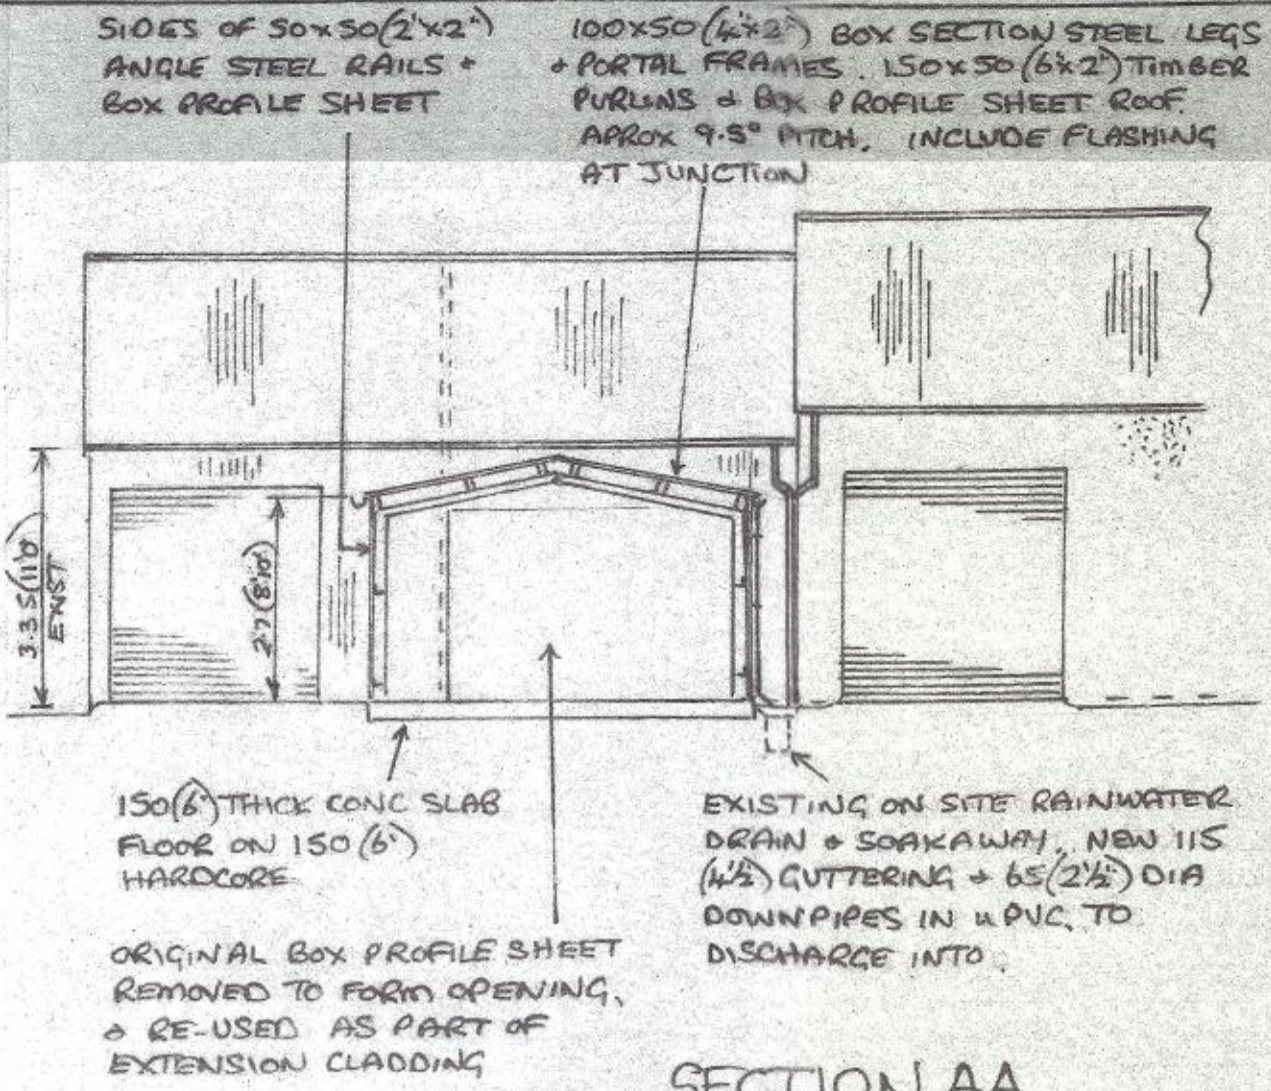 SIDES OF 50x50(2"x2")
ANGLE STEEL RAILS &
BOX PROFILE SHEET
100x50(4"x2") BOX SECTION STEEL LEGS
& PORTAL FRAMES. 150x50(6"x2") TIMBER
PURLINS & BOX PROFILE SHEET ROOF.
APROX 9.5° PITCH. INCLUDE FLASHING
AT JUNCTION
3.35(11'0")
EXIST
2.7(8'10")
150(6") THICK CONC SLAB
FLOOR ON 150(6")
HARDCORE
ORIGINAL BOX PROFILE SHEET
REMOVED TO FORM OPENING,
& RE-USED AS PART OF
EXTENSION CLADDING
EXISTING ON SITE RAINWATER
DRAIN & SOAKAWAY. NEW 115
(4½") GUTTERING & 65(2½") DIA
DOWNPIPES IN uPVC, TO
DISCHARGE INTO.
SECTION AA